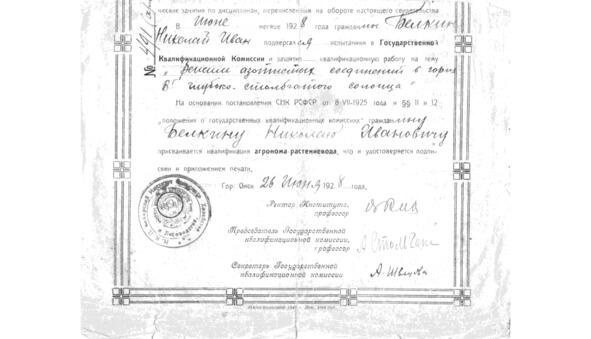 ческие занятия по дисциплинам, перечисленным на обороте настоящего свидетельства
В Июне месяце 1928 года гражданин Белкин
Николай Иван подвергался испытаниям в Государственной
Квалификационной Комиссии и защищал квалификационную работу на тему
„Режим азотистых соединений в гориз
В" глубоко-столбчатого солонца"
На основании постановления СНК РСФСР от 8-VII-1925 года и §§ 11 и 12
„положения о государственных квалификационных комиссиях" гражданину
Белкину Николаю Ивановичу
присваивается квалификация агронома-растениевода, что и удостоверяется подпи-
сями и приложением печати.
Гор. Омск 26 Июня 1928 года.
Ректор Института,
профессор
Председатель Государственной
квалификационной комиссии,
профессор
Секретарь Государственной
квалификационной комиссии
№ 491